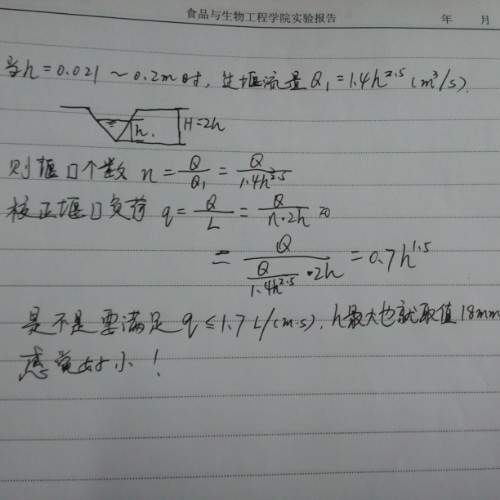 食品与生物工程学院实验报告 年 月
当h=0.021～0.2m时，过堰流量Q₁=1.4h^2.5 (m³/s).
h. H=2h
则堰口个数 n = Q/Q₁ = Q/(1.4h^2.5)
校正堰口负荷 q = Q/L = Q/(n·2h)
= Q/(Q/(1.4h^2.5)·2h) = 0.7h^1.5
是不是要满足 q≤1.7 L/(m·s), h最大也就取值18mm
感觉好小！